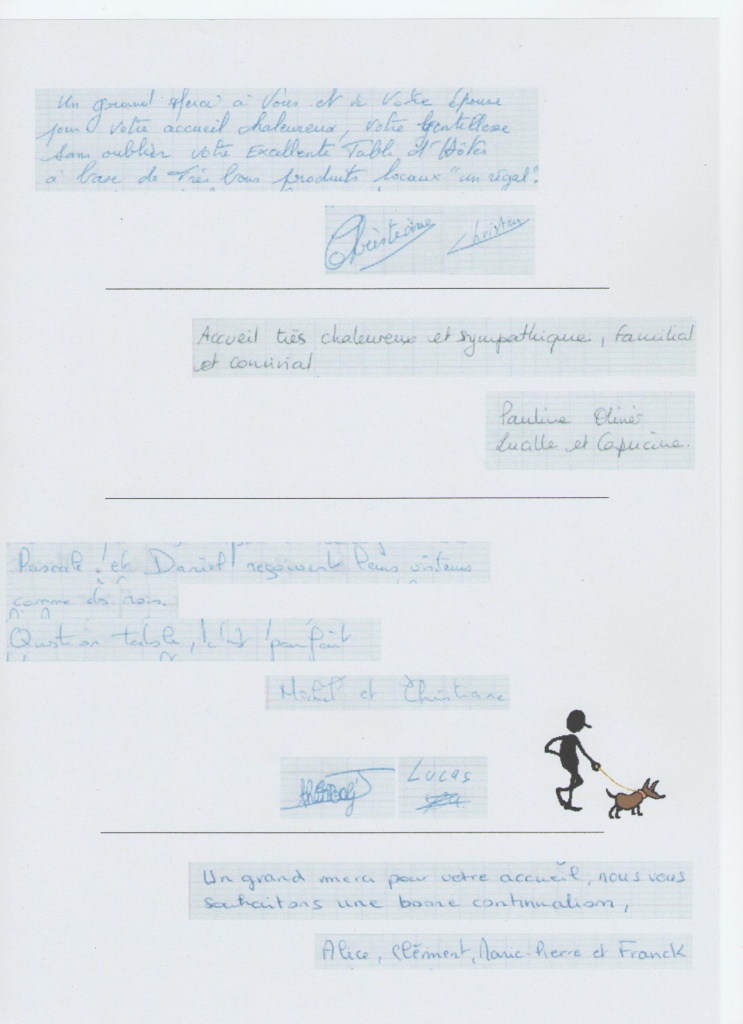 Un grand Merci à Vous et à Votre épouse
pour votre accueil chaleureux, votre gentillesse
sans oublier votre Excellente Table d'Hôtes
à base de Très bons produits locaux "un régal".
Christiane Christian
Accueil très chaleureux et sympathique, familial
et convivial
Pauline Olivier
Lucille et Capucine.
Pascale et Daniel reçoivent leurs visiteurs
comme des rois.
Question table, c'est parfait
Michel et Christiane
Lucas
Un grand merci pour votre accueil, nous vous
souhaitons une bonne continuation,
Alice, Clément, Marie-Pierre et Franck